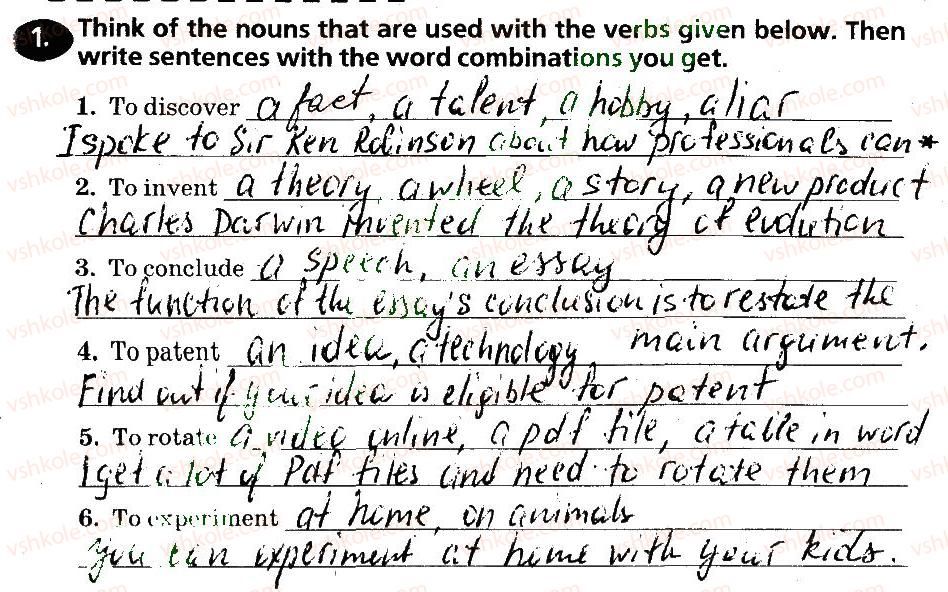 1. Think of the nouns that are used with the verbs given below. Then
write sentences with the word combinations you get.
1. To discover a fact, a talent, a hobby, a liar
I spoke to Sir Ken Robinson about how professionals can *
2. To invent a theory, a wheel, a story, a new product
Charles Darwin invented the theory of evolution
3. To conclude a speech, an essay
The function of the essay's conclusion is to restate the
main argument.
4. To patent an idea, a technology
Find out if your idea is eligible for patent
5. To rotate a video online, a pdf file, a table in word
I get a lot of Pdf files and need to rotate them
6. To experiment at home, on animals
You can experiment at home with your kids.
vshkole.com